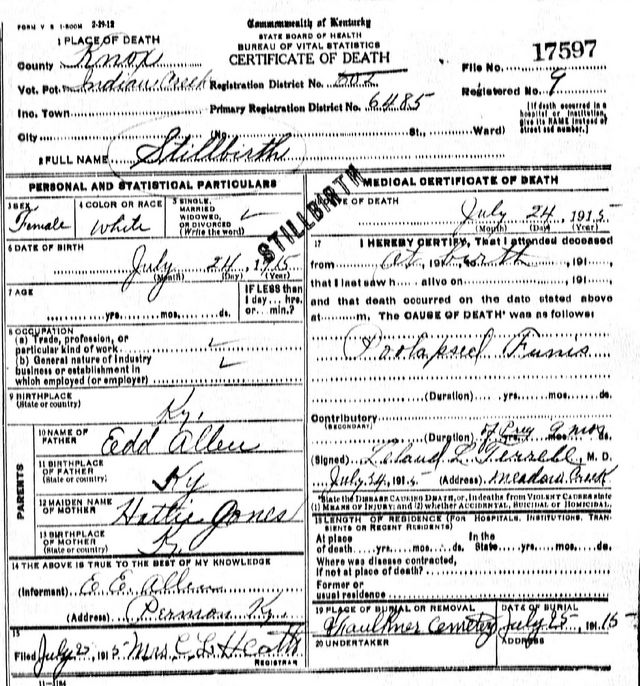 FORM V S 1-500M 2-29-12
Commonwealth of Kentucky
STATE BOARD OF HEALTH
BUREAU OF VITAL STATISTICS
CERTIFICATE OF DEATH
1 PLACE OF DEATH
County Knox
Vot. Pct. Indian Creek Registration District No.
Inc. Town Primary Registration District No. 6485
File No. 17597
Registered No. 9
City (No. St., Ward)
[If death occurred in a hospital or institution, give its NAME instead of street and number.]
2 FULL NAME Stillbirth
STILLBIRTH
PERSONAL AND STATISTICAL PARTICULARS
3 SEX Female
4 COLOR OR RACE White
5 SINGLE, MARRIED WIDOWED, OR DIVORCED (Write the word)
6 DATE OF BIRTH
July 24, 1915
(Month) (Day) (Year)
7 AGE
yrs. mos. ds.
IF LESS than 1 day... hrs. or min.?
8 OCCUPATION
(a) Trade, profession, or
particular kind of work
(b) General nature of industry
business or establishment in
which employed (or employer)
9 BIRTHPLACE
(State or country) Ky.
PARENTS
10 NAME OF FATHER Edd Allen
11 BIRTHPLACE OF FATHER (State or country) Ky
12 MAIDEN NAME OF MOTHER Hattie Jones
13 BIRTHPLACE OF MOTHER (State or country) Ky
14 THE ABOVE IS TRUE TO THE BEST OF MY KNOWLEDGE
(Informant) E E Allen
(Address) Permon Ky.
15
Filed July 25, 1915 Mrs C L Heath
REGISTRAR
11-1184
MEDICAL CERTIFICATE OF DEATH
DATE OF DEATH
July 24, 1915
(Month) (Day) (Year)
17 I HEREBY CERTIFY, That I attended deceased
from at birth, 191
that I last saw h alive on, 191
and that death occurred on the date stated above
at m. The CAUSE OF DEATH* was as follows:
Prolapsed Funis
(Duration) yrs. mos. ds.
Contributory
(SECONDARY)
(Duration) of Preg 9 mos ds.
(Signed) Leland L Terrell, M. D.
July 24, 1915 (Address) Meadow Creek
*State the DISEASE CAUSING DEATH, or, in deaths from VIOLENT CAUSES state
(1) MEANS OF INJURY; and (2) whether ACCIDENTAL, SUICIDAL OR HOMICIDAL.
18 LENGTH OF RESIDENCE (FOR HOSPITALS, INSTITUTIONS, TRANSIENTS OR RECENT RESIDENTS)
At place of death yrs. mos. ds. In the State yrs. mos. ds.
Where was disease contracted,
if not at place of death?
Former or
usual residence
19 PLACE OF BURIAL OR REMOVAL
Faulkner Cemetery
DATE OF BURIAL
July 25, 1915
20 UNDERTAKER
ADDRESS